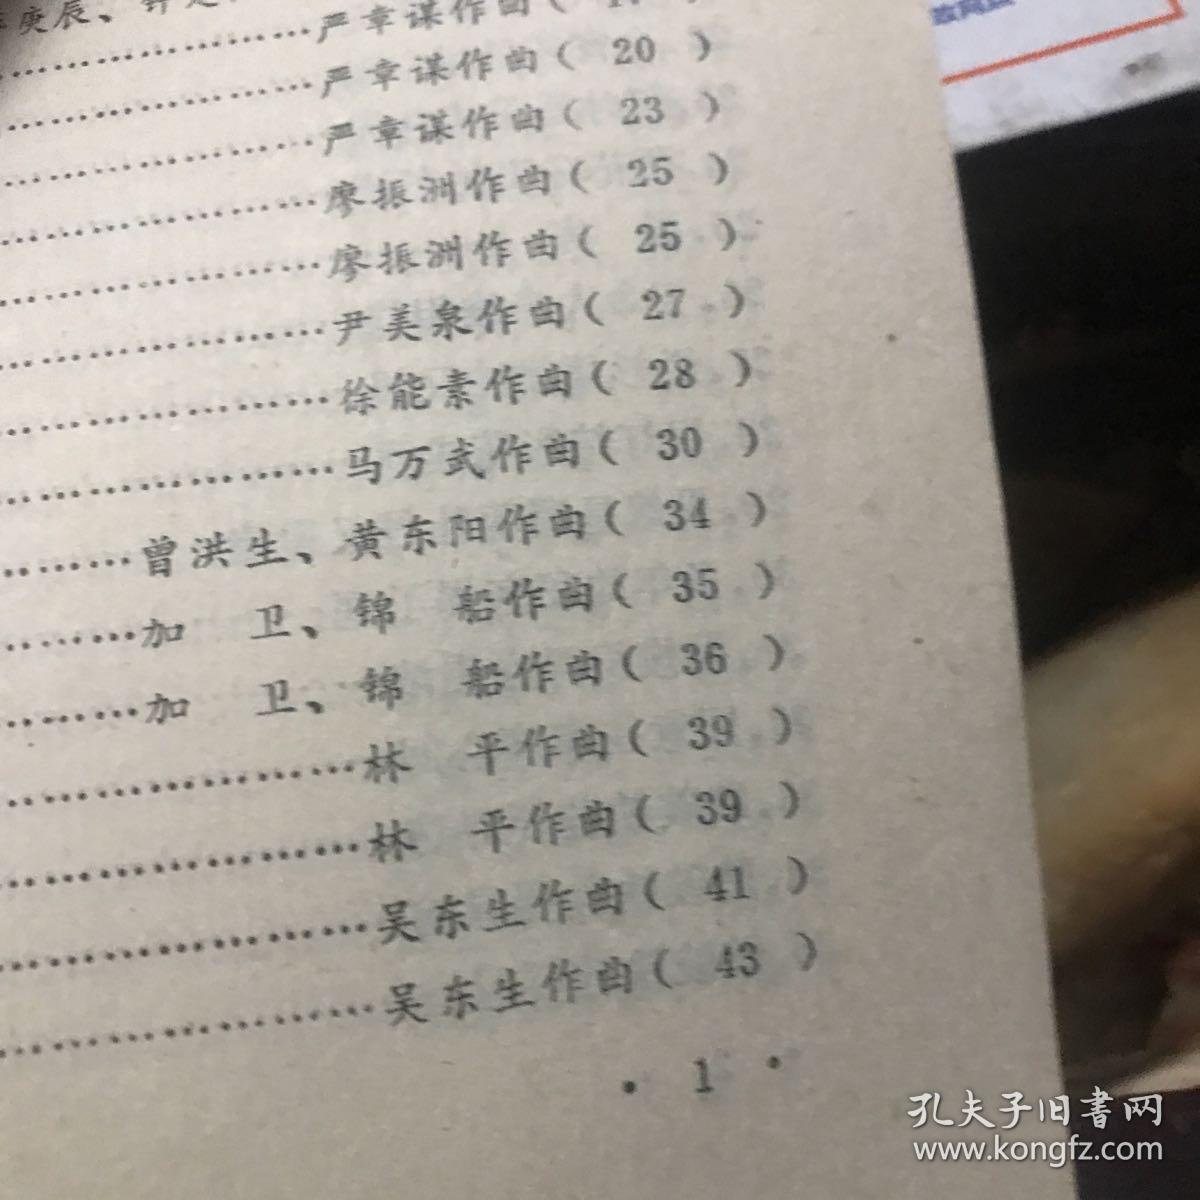 庚辰、钟
……………………严章谋作曲(
……………………严章谋作曲( 20 )
……………………严章谋作曲( 23 )
……………………廖振洲作曲( 25 )
……………………廖振洲作曲( 25 )
……………………尹美泉作曲( 27 )
……………………徐能素作曲( 28 )
……………………马万武作曲( 30 )
………曾洪生、黄东阳作曲( 34 )
………加　卫、锦　船作曲( 35 )
………加　卫、锦　船作曲( 36 )
……………………林　平作曲( 39 )
……………………林　平作曲( 39 )
……………………吴东生作曲( 41 )
……………………吴东生作曲( 43 )
• 1 •
孔夫子旧书网
www.kongfz.com